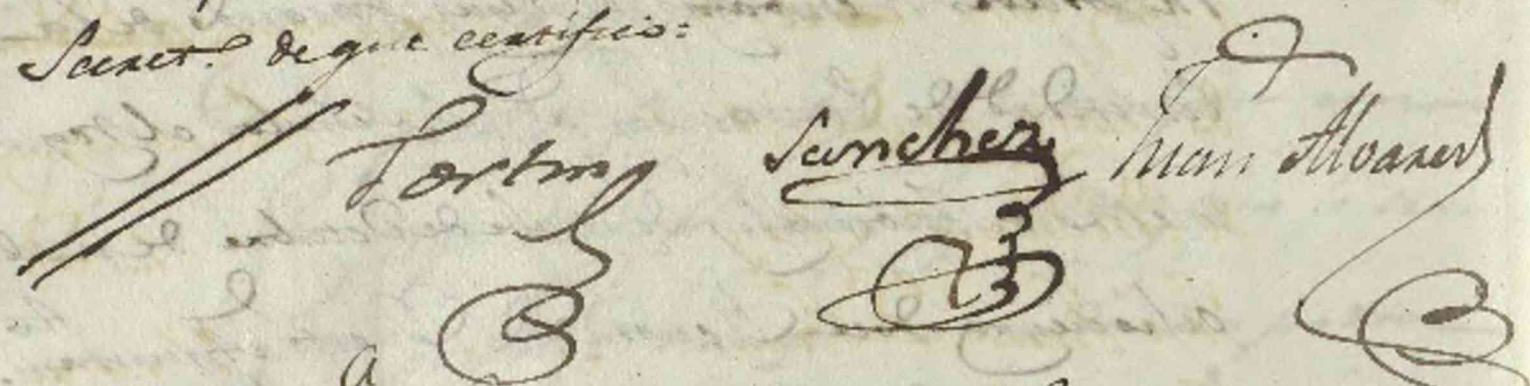 Secret.º de que certifico:
Fortin Sanchez Juan Alvarez